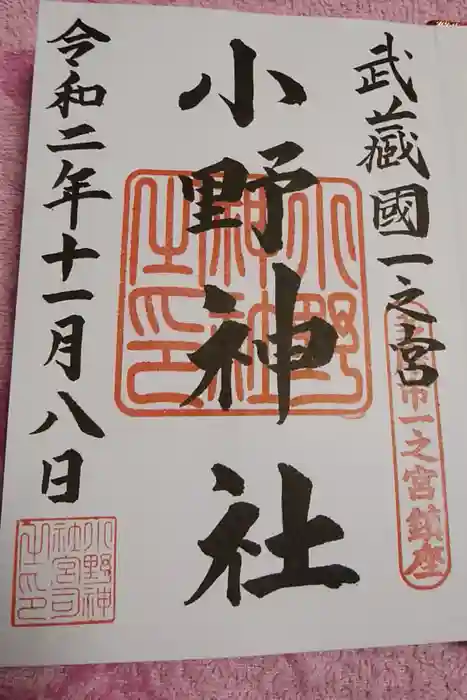 武蔵國一之宮
市一之宮鎮座
小野神社
小野神社之印
令和二年十一月八日
小野神社宮司之印